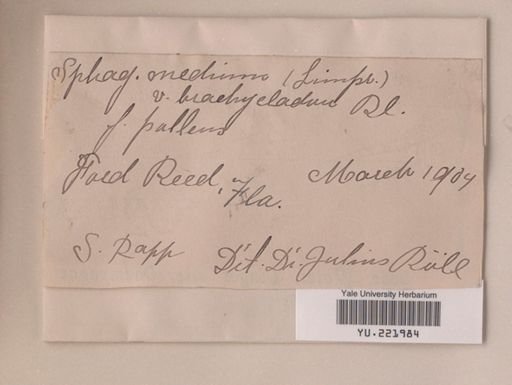 Sphag. medium (Limpr.)
v. brachycladum Rl.
f. pallens
Ford Reed, Fla. March 1904
S. Rapp Dét. Dr. Julius Röll
Yale University Herbarium
YU.221984